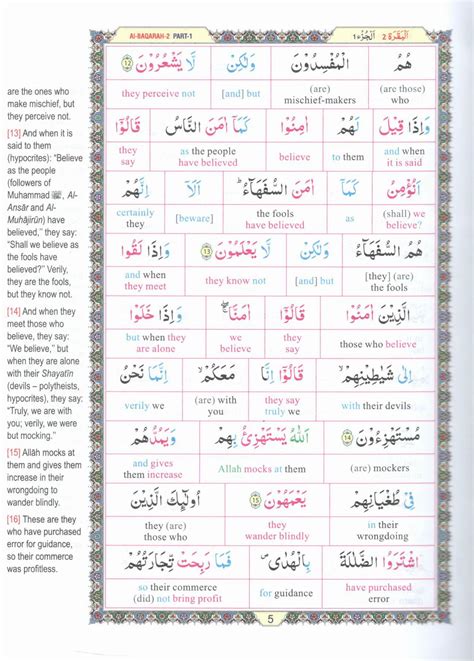 Al-BAQARAH-2 PART-1
اَلْبَقَرَة 2 اَلْجُزْء 1
are the ones who
make mischief, but
they perceive not.
[13] And when it is
said to them
(hypocrites): "Believe
as the people
(followers of
Muhammad ﷺ, Al-
Ansâr and Al-
Muhâjirûn) have
believed," they say:
"Shall we believe as
the fools have
believed?" Verily,
they are the fools,
but they know not.
[14] And when they
meet those who
believe, they say:
"We believe," but
when they are alone
with their Shayatîn
(devils – polytheists,
hypocrites), they say:
"Truly, we are with
you; verily, we were
but mocking."
[15] Allâh mocks at
them and gives them
increase in their
wrongdoing to
wander blindly.
[16] These are they
who have purchased
error for guidance,
so their commerce
was profitless.
هُمُ الْمُفْسِدُوْنَ وَلٰكِنْ لَّا يَشْعُرُوْنَ 12
(are those)
who
mischief-makers
[and] but
they perceive not
وَاِذَا قِيْلَ لَهُمْ اٰمِنُوْا كَمَآ اٰمَنَ النَّاسُ قَالُوْٓا
and when
it is said
to them
believe
as the people
have believed
they
say
اَنُؤْمِنُ كَمَآ اٰمَنَ السُّفَهَآءُ ؕ اَلَآ اِنَّهُمْ
(shall) we
believe?
as
the fools
have believed
[beware]
certainly
they
هُمُ السُّفَهَآءُ وَلٰكِنْ لَّا يَعْلَمُوْنَ 13 وَاِذَا لَقُوا
[they] (are)
the fools
[and] but
they know not
and when
they meet
الَّذِيْنَ اٰمَنُوْا قَالُوْٓا اٰمَنَّا ۖ وَاِذَا خَلَوْا
those who believe
they
say
we
believe
but when they
are alone
اِلٰى شَيٰطِيْنِهِمْ ۙ قَالُوْٓا اِنَّا مَعَكُمْ ۙ اِنَّمَا نَحْنُ
with their devils
they say
truly we
(are) with
you
verily we
مُسْتَهْزِءُوْنَ 14 اَللّٰهُ يَسْتَهْزِئُ بِهِمْ وَيَمُدُّهُمْ
(are) mocking
Allah mocks at them
and gives
them increase
فِيْ طُغْيَانِهِمْ يَعْمَهُوْنَ 15 اُولٰٓئِكَ الَّذِيْنَ
in their
wrongdoing
they
wander blindly
(are) those who
they
اشْتَرَوُا الضَّلٰلَةَ بِالْهُدٰى ۪ فَمَا رَبِحَتْ تِّجَارَتُهُمْ
have purchased
error
for guidance
so their commerce
(did) not bring profit
5